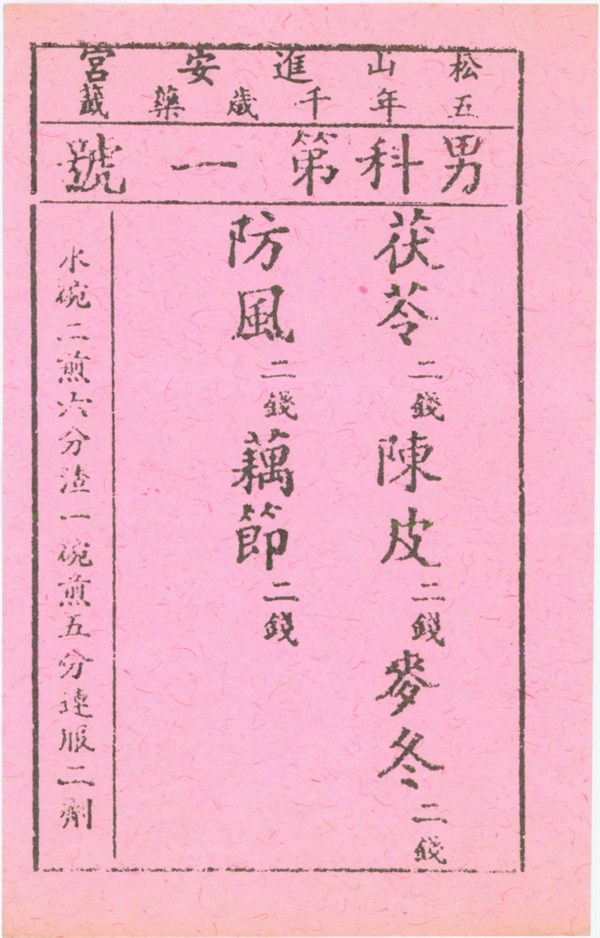 松山進安宮
五年千歲藥籤
男科第一號
茯苓二錢陳皮二錢麥冬二錢
防風二錢藕節二錢
水碗二煎六分渣一碗煎五分連服二劑